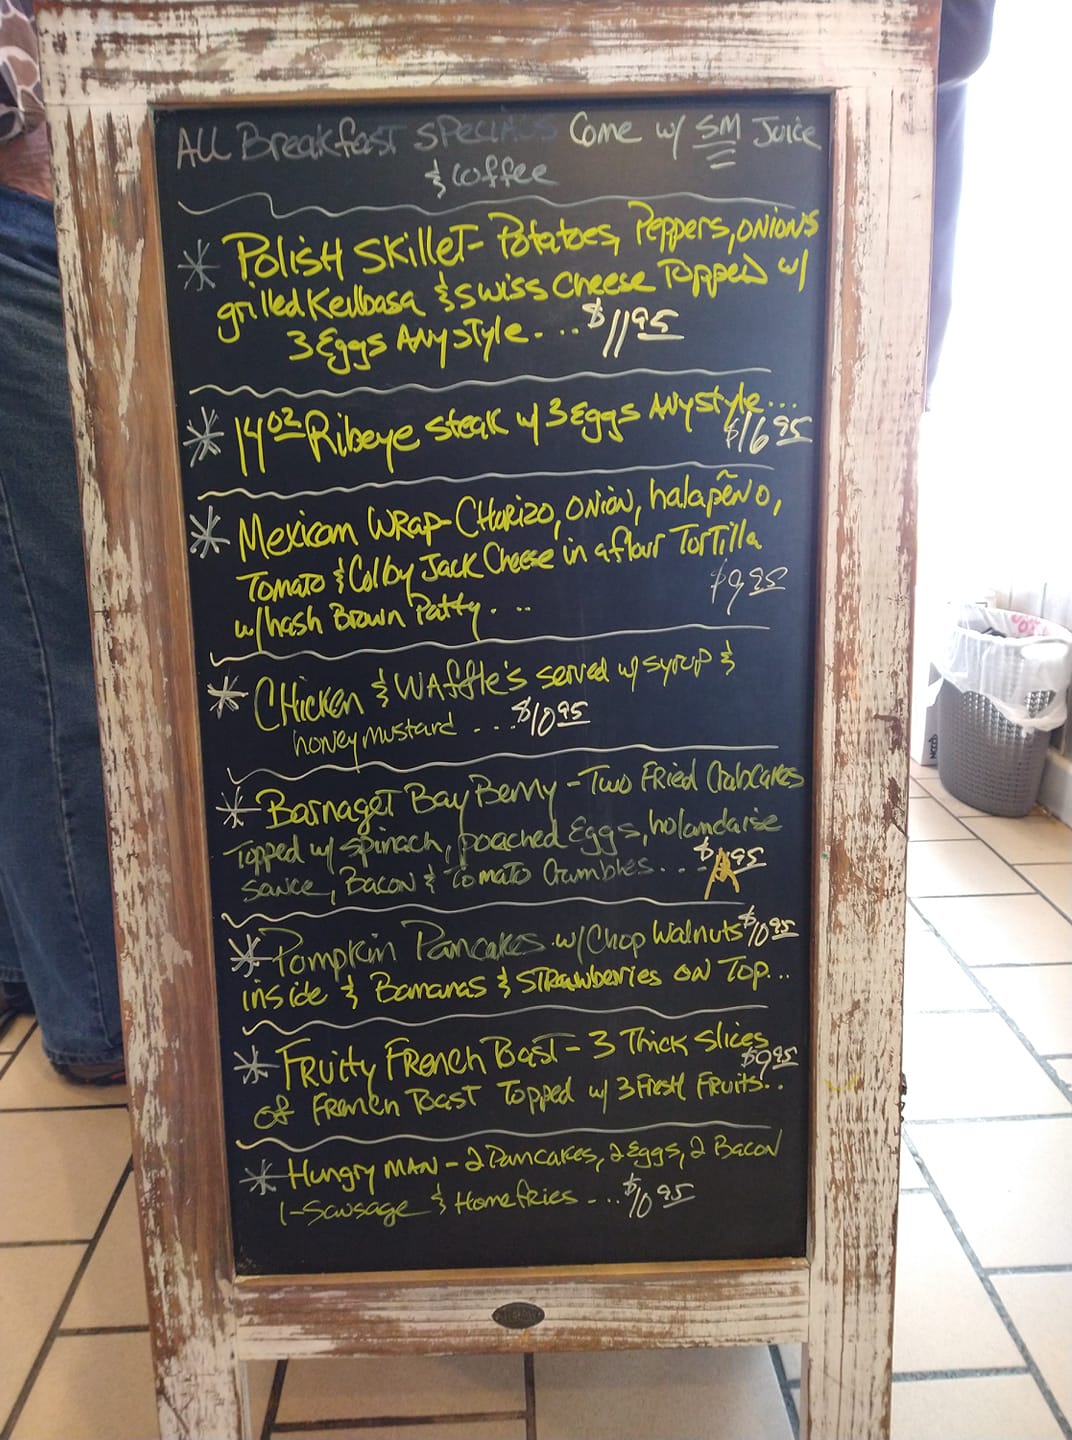 All Breakfast Specials Come w/ SM Juice
& Coffee
* Polish Skillet - Potatoes, Peppers, onions
grilled Keilbasa & swiss Cheese Topped w/
3 Eggs Any style.... $11.95
* 14oz Ribeye steak w/ 3 Eggs Any style....
$16.95
* Mexican Wrap - Chorizo, onion, halapeño,
Tomato & Colby Jack Cheese in a flour Tortilla
$9.95
w/ hash Brown Patty...
* Chicken & Waffle's served w/ syrup &
honey mustard ... $10.95
* Barnaget Bay Benny - Two Fried Crabcakes
Topped w/ spinach, poached Eggs, holandaise
sauce, Bacon & Tomato Crumbles...
* Pumpkin Pancakes w/ Chop Walnuts $10.95
inside & Bananas & Strawberries on Top...
* Fruity French Toast - 3 Thick Slices
$9.95
of French Toast Topped w/ 3 Fresh Fruits...
* Hungry Man - 2 Pancakes, 2 Eggs, 2 Bacon
1 - Sausage & Homefries .... $10.95